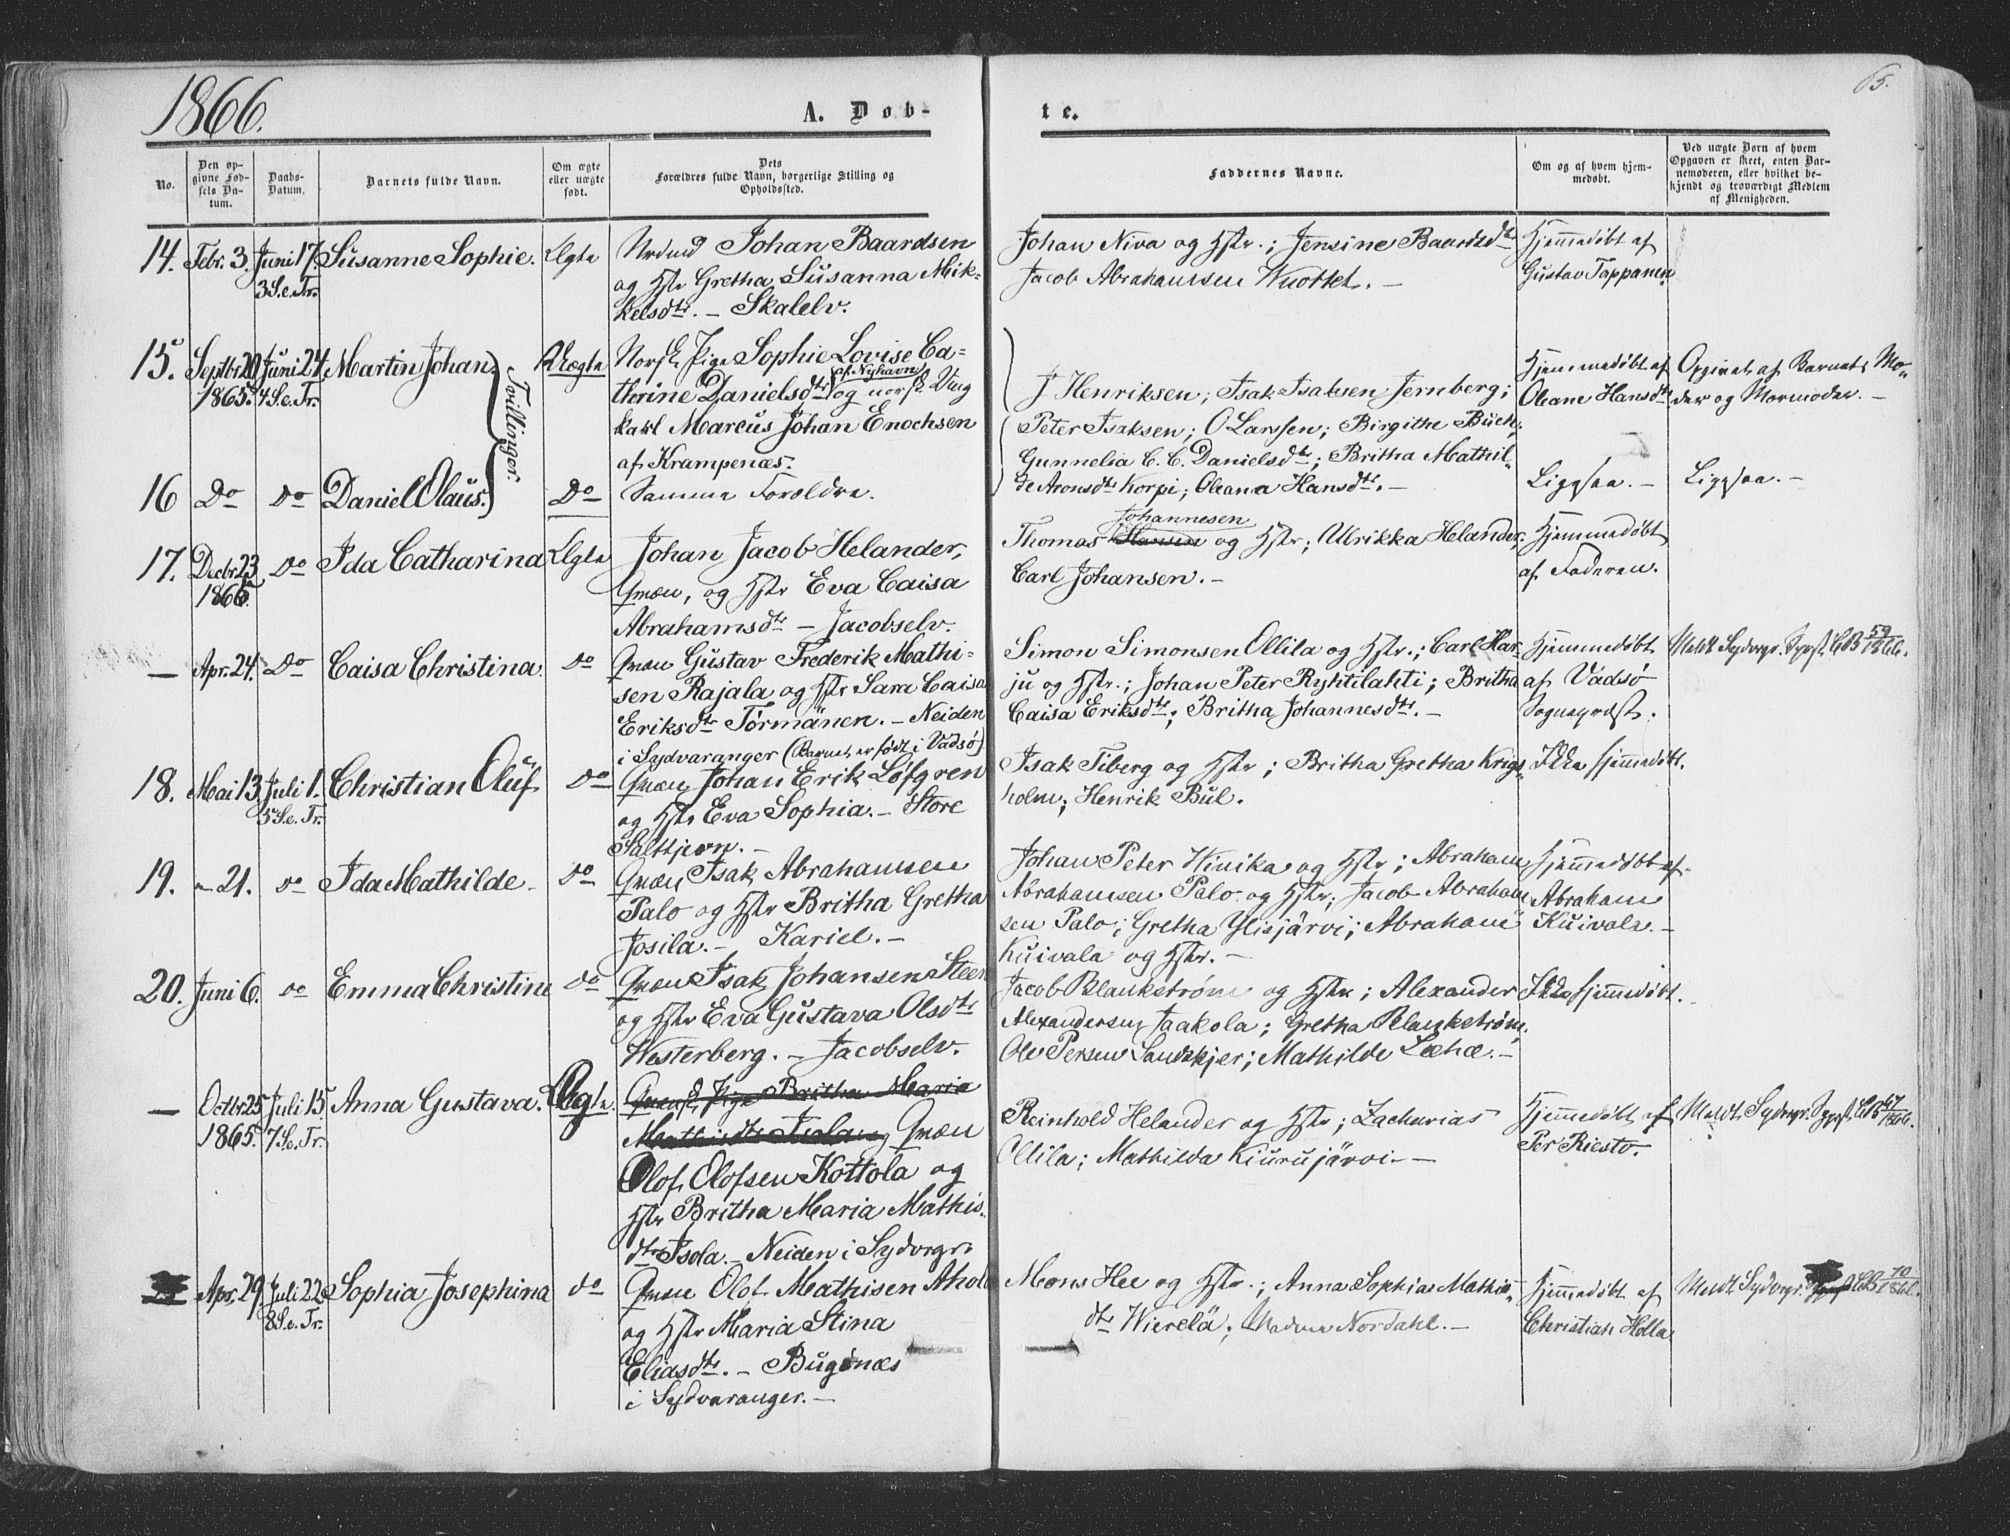 1866.
65.
A. Døb-
te.
No.
Den op-
givne Fød-
sels Da-
tum.
Daabs-
Datum.
Barnets fulde Navn.
Om ægte
eller uægte
født.
Dets
Forældres fulde Navn, borgerlige Stilling og
Opholdssted.
Faddernes Navne.
Om og af hvem hjem-
medøbt.
Ved uægte Børn af hvem
Opgaven er skeet, enten Bar-
nemoderen, eller hvilket be-
kjendt og troværdigt Medlem
af Menigheden.
14. Febr. 3. Juni 17. Susanne Sophie. Ægte
3 S. e. Tr.
Nrdmd Johan Baardsen
og Hstr Gretha Susanna Mik-
kelsdtr. — Skalelv.
Johan Niva og Hstr.; Jensine Baardsdtr
Jacob Abrahamsen Wuottet. —
Hjemmedøbt af
Gustav Tappanen
15. Septbr 20 Juni 24 Martin Johan. Uægte
1865. 4 S. e. Tr.
Tvillinger.
Norsk Pige Sophie Lovise Ca-
af Nyhavn
thrine Danielsdtr og norsk Ung
karl Marcus Johan Enochsen
af Krampenæs.
J Henriksen; Isak Isaksen Jernberg;
Peter Isaksen; O Larssen; Birgithe Buch;
Gunnelia C. C. Danielsdtr; Britha Mathil-
de Aronsdtr Korpi; Oleana Hansdtr. —
Hjemmedøbt af
Oleane Hansdtr
Opgivet af Barnets Mo-
der og Mormoder. —
16 Do do Daniel Olaus. Do
Samme Forældre.
Ligesaa. —
Ligesaa. —
17. Decbr 23 do Ida Catharina Ægte
1865.
Johan Jacob Helander,
Qvæn, og Hstr Eva Caisa
Abrahamsdtr — Jacobselv.
Johannesen
Thomas Hansen og Hstr; Ulrikka Helander,
Carl Johansen. —
Hjemmedøbt
af Faderen.
— Apr. 24. Do Caisa Christina. do
Qvæn Gustav Frederik Mathi-
sen Rajala og Hstr Sara Caisa
Eriksdtr Törmänen. — Neiden
i Sydvaranger (Barnet er født i Vadsø)
Simon Simonsen Ollila og Hstr.; Carl Har-
ju og Hstr.; Johan Peter Ryhtilahti; Britha
Caisa Eriksdtr; Britha Johannesdtr. —
Hjemmedøbt
af Vadsø
Sognepræst.
Meldt Sydvrgr. Sgpst. CB 59/1866.
18. Mai 13. Juli 1. Christian Oluf. do
5 S. e. Tr.
Qvæn Johan Erik Löfgren
og Hstr Eva Sophia. — Store
Saltjern. —
Isak Tiberg og Hstr; Britha Gretha Krigs-
holm; Henrik Bul.
Ikke hjemmedøbt.
19. — 21. do Ida Mathilde — do
Qvæn Isak Abrahamsen
Palo og Hstr Britha Gretha
Josila. — Kariel. —
Johan Peter Winika og Hstr; Abraham
Abrahamsen Palo og Hstr; Jacob Abraham
sen Palo; Gretha Ylisjärvi; Abraham
Kuivala og Hstr. —
Hjemmedøbt af
Abraham
Kuivala. —
20. Juni 6. do Emma Christine do
Qvæn Isak Johansen Steen
og Hstr Eva Gustava Olsdtr
Westerberg. — Jacobselv.
Jacob Blankstrøm og Hstr; Alexander
Alexandersen Jaakola; Gretha Blankstrøm,
Ole Persen Sandskjer; Mathilde Læhæ. —
Ikke hjemmedøbt.
— Octbr 25 Juli 15 Anna Gustava. Ægte.
1865. 7 S. e. Tr.
Qvensk Pige Britha Maria
Mathisdtr Isola og Qvæn
Olof Olofsen Kottola og
Hstr Britha Maria Mathis-
dtr Isola. — Neiden i Sydvrgr.
Reinhold Helander og Hstr; Zacharias
Ollila; Mathilda Kiurujärvi. —
Hjemmedøbt af
Per Riesto.
Meldt Sydvrgr. Sgpst. CB 47/1866.
Apr. 29. Juli 22 Sophia Josephina do
8 S. e. Tr.
Qvæn Olof Mathisen Ahola
og Hstr Maria Stina
Eliasdtr. — Bugønæs
i Sydvaranger. —
Mons Hee og Hstr.; Anna Sophia Mathis-
dtr Wierelä; Madame Nordahl. —
Hjemmedøbt af
Christian Holla
Meldt Sydvrgr. CB 70/1866.